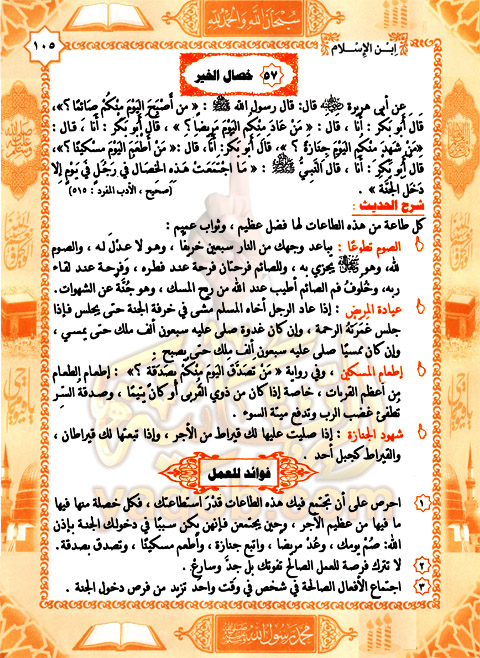 سبحان الله والحمد لله
١٠٥
ابن الإسلام
٥٧ خصال الخير
عن أبي هريرة ﷺ قال: قال رسول الله ﷺ : « من أَصْبَحَ اليَوْمَ مِنكُم صَائمًا ؟»،
قَالَ أَبُو بَكْرٍ : أَنَا ، قال : « مَنْ عَادَ مِنْكُم اليَوْمَ مَرِيضًا ؟ » ، قَالَ أَبُو بَكْر : أَنَا ، قال :
«مَنْ شَهِدَ مِنْكُم اليَوْمَ جِنَازَةً ؟ »، قَالَ أَبُو بَكْر: أَنَا، قال :« مَنْ أَطْعَمَ اليَوْمَ مِسْكينًا ؟»،
قَالَ أَبُو بَكْر : أَنَا ، قَالَ النَّبِيُّ ﷺ : « مَا اجْتَمَعَتْ هَذه الخصَالُ في رَجُلٍ في يَومٍ إِلا
دَخَلَ الجَنَّةَ » .
[صحيح ، الأدب المفرد : ٥١٥]
شرح الحديث :
كل طاعة من هذه الطاعات لها فضل عظيم ، وثواب عميم :
الصوم تطوعًا : يباعد وجهك من النار سبعين خريفًا ، وهو لا عدْلَ له ، والصوم
لله، وهو ﷻ يجزي به ، وللصائم فرحتان فرحة عند فطره ، وفرحة عند لقاء
ربه، وخُلُوفُ فم الصائم أطيب عند الله من ريح المسك ، وهو جُنَّة عن الشهوات.
عيادة المريض : إذا عاد الرجل أخاه المسلم مشى في خرفة الجنة حتى يجلس فإذا
جلس غمَرَتهُ الرحمة ، وإن كان غدوة صلى عليه سبعون ألف ملك حتى يمسي ،
وإن كان ممسيًا صلى عليه سبعون ألف ملك حتى يصبح .
إطعام المسكين ، وفي رواية « مَنْ تَصَدَّقَ اليَوْمَ مِنْكُم بصَدَقَة ؟» : إطعام الطعام
من أعظم القربات ، خاصة إذا كان من ذوي القُربى أو كان يَتيمًا ، وصدقةُ السِّر
تطفئ غضب الرب وتدفع ميتة السوء .
شهود الجنازة : إذا صليت عليها لك قيراط من الأجر ، وإذا تبعتها لك قيراطان ،
والقيراط كجبل أحد .
فوائد للعمل
١ احرص على أن تجتمع فيك هذه الطاعات قَدْرَ استطاعتك ، فكل خصلة منها فيها
ما فيها من عظيم الأجر ، وحين يجتمعن فإنهن يكن سببًا في دخولك الجنة بإذن
الله: صُمْ يومك ، وعُدْ مريضًا ، واتبع جنازة ، وأطعم مسكينًا ، وتصدق بصدقة.
٢ لا تترك فرصة للعمل الصالح تفوتك بل جدَّ وسارعْ .
٣ اجتماع الأفعال الصالحة في شخص في وقت واحد تزيد من فرص دخول الجنة .
محمد رسول الله